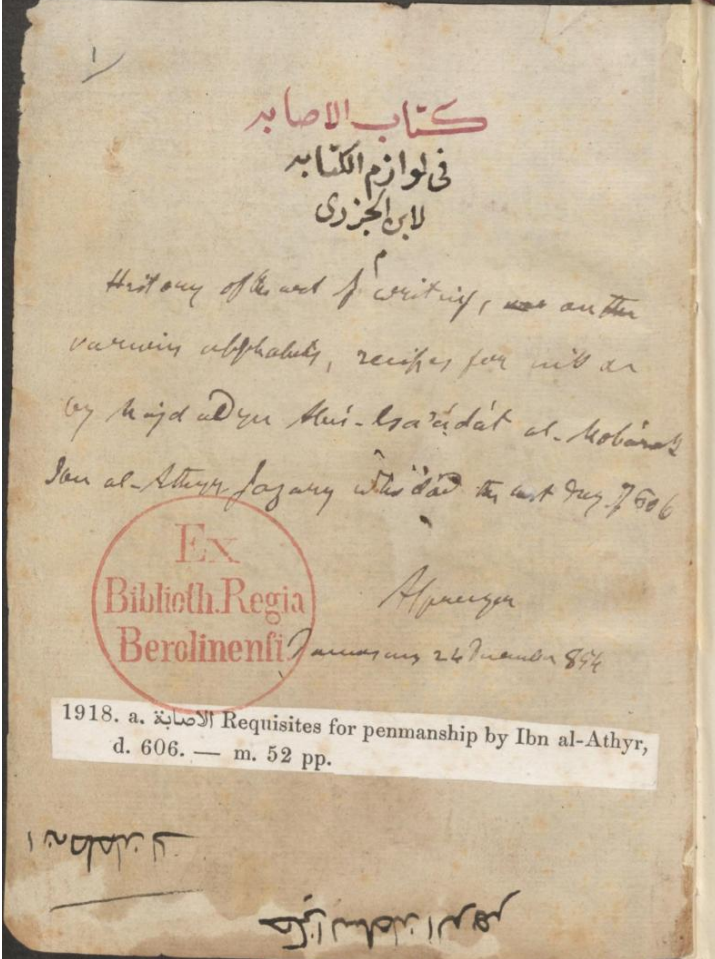 1
كتاب الاصابه
فى لوازم الكتابه
لابن الجزرى
History of the art of writing, on the
various alphabets, recipes for ink &
by Majd aldyn Abú-lsa'ádát al-Mobárak
Ibn al-Athyr Jazary who died the last day of 606
ASprenger
Damascus 24 December 854
Ex
Biblioth. Regia
Berolinensi
1918. a. الاصابة Requisites for penmanship by Ibn al-Athyr,
d. 606. — m. 52 pp.